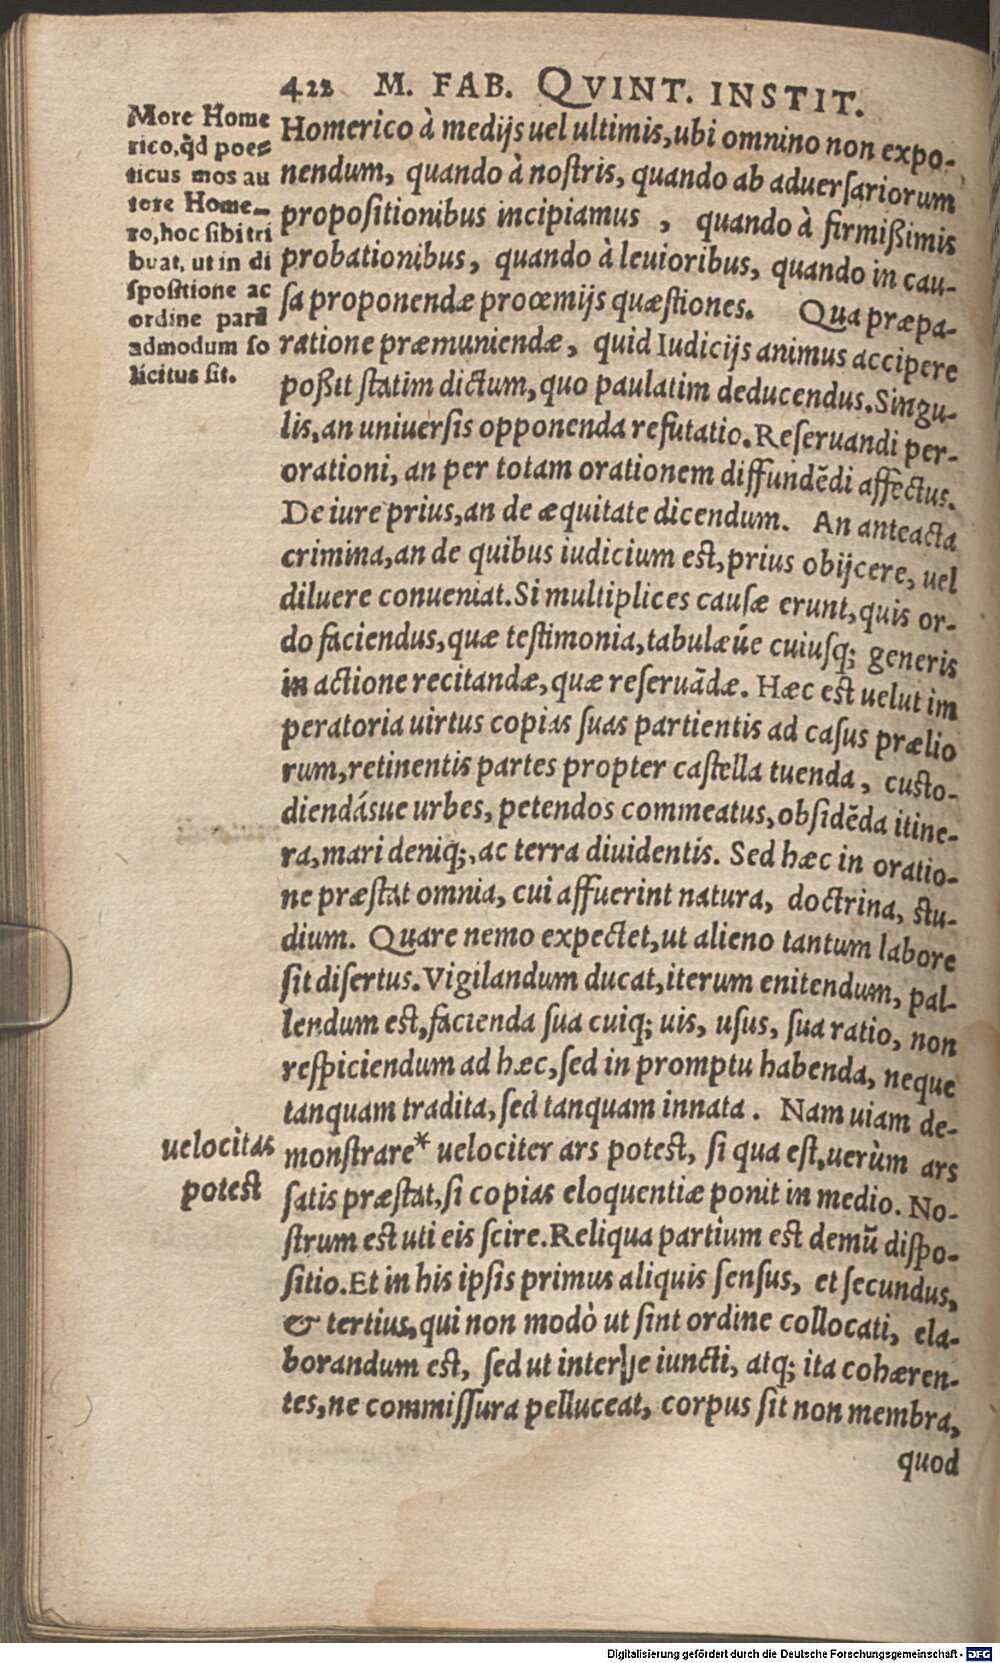 422 M. FAB. QVINT. INSTIT.
More Home
rico, qd poe=
ticus mos au
tore Home-
ro, hoc sibi tri
buat, ut in di
spositione ac
ordine parū
admodum so
licitus sit.
Homerico à medijs uel ultimis, ubi omnino non expo-
nendum, quando à nostris, quando ab aduersariorum
propositionibus incipiamus, quando à firmißimis
probationibus, quando à leuioribus, quando in cau-
sa proponendæ prooemijs quæstiones. Qua præpa-
ratione præmuniendæ, quid Iudicijs animus accipere
poßit statim dictum, quo paulatim deducendus. Singu-
lis, an uniuersis opponenda refutatio. Reseruandi per-
orationi, an per totam orationem diffundēdi affectus.
De iure prius, an de æquitate dicendum. An anteacta
crimina, an de quibus iudicium est, prius obijcere, uel
diluere conueniat. Si multiplices causæ erunt, quis or-
do faciendus, quæ testimonia, tabulæúe cuiusq; generis
in actione recitandæ, quæ reseruādæ. Hæc est uelut im
peratoria uirtus copias suas partientis ad casus prælio
rum, retinentis partes propter castella tuenda, custo-
diendásue urbes, petendos commeatus, obsidēda itine-
ra, mari deniq;, ac terra diuidentis. Sed hæc in oratio-
ne præstat omnia, cui affuerint natura, doctrina, stu-
dium. Quare nemo expectet, ut alieno tantum labore
sit disertus. Vigilandum ducat, iterum enitendum, pal-
lendum est, facienda sua cuiq; uis, usus, sua ratio, non
respiciendum ad hæc, sed in promptu habenda, neque
tanquam tradita, sed tanquam innata. Nam uiam de-
monstrare* uelociter ars potest, si qua est, uerùm ars
satis præstat, si copias eloquentiæ ponit in medio. No-
strum est uti eis scire. Reliqua partium est demū dispo-
sitio. Et in his ipsis primus aliquis sensus, et secundus,
& tertius, qui non modò ut sint ordine collocati, ela-
borandum est, sed ut inter se iuncti, atq; ita cohæren-
tes, ne commissura pelluceat, corpus sit non membra,
quod
uelocitas
potest
Digitalisierung gefördert durch die Deutsche Forschungsgemeinschaft - DFG